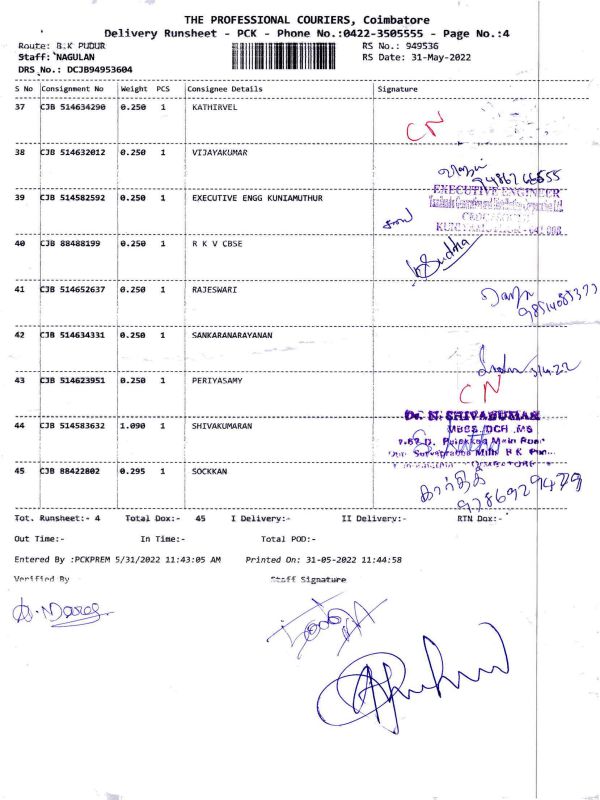 THE PROFESSIONAL COURIERS, Coimbatore
Delivery Runsheet - PCK - Phone No.:0422-3505555 - Page No.:4
Route: B.K PUDUR RS No.: 949536
Staff: NAGULAN RS Date: 31-May-2022
DRS No.: DCJB94953604
S No Consignment No Weight PCS Consignee Details Signature
37 CJB 514634290 0.250 1 KATHIRVEL
CN
38 CJB 514632012 0.250 1 VIJAYAKUMAR
39 CJB 514582592 0.250 1 EXECUTIVE ENGG KUNIAMUTHUR
EXECUTIVE ENGINEER
40 CJB 88488199 0.250 1 R K V CBSE
Sudha
41 CJB 514652637 0.250 1 RAJESWARI
42 CJB 514634331 0.250 1 SANKARANARAYANAN
43 CJB 514623951 0.250 1 PERIYASAMY
CN
44 CJB 514583632 1.090 1 SHIVAKUMARAN
Dr. N. SHIVAKUMAR
MBBS.,DCH.,MS
45 CJB 88422802 0.295 1 SOCKKAN
கார்த்திக்
9786929479
Tot. Runsheet:- 4 Total Dox:- 45 I Delivery:- II Delivery:- RTN Dox:-
Out Time:- In Time:- Total POD:-
Entered By :PCKPREM 5/31/2022 11:43:05 AM Printed On: 31-05-2022 11:44:58
Verified By Staff Signature